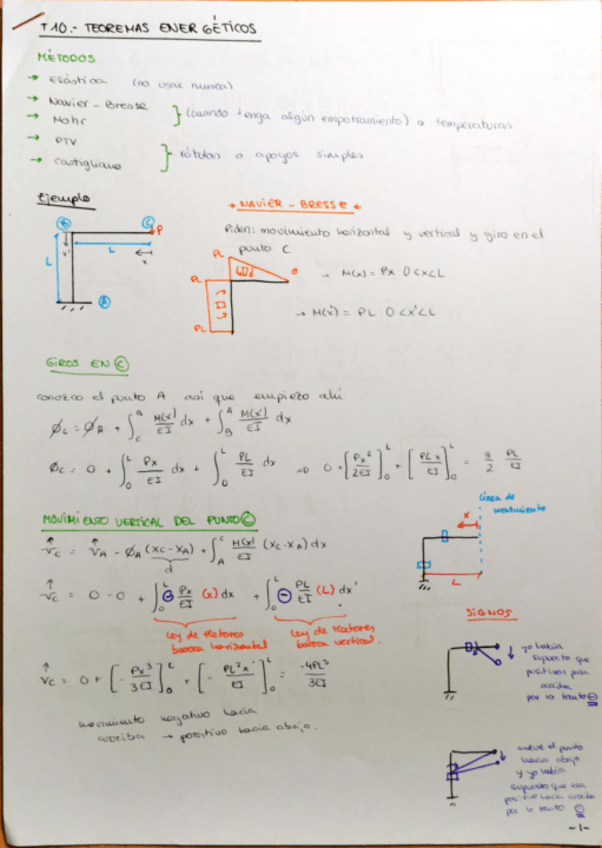 T10.- TEOREMAS ENERGÉTICOS
MÉTODOS
→ Elástica (no usar nunca)
→ Navier - Bresse
→ Mohr
} (cuando tenga algún empotramiento) o temperaturas
→ PTV
→ Castigliano
} rótulas o apoyos simples
Ejemplo
B
C
P
L
x
x'
L
A
→ NAVIER - BRESSE ←
Piden: movimiento horizontal y vertical y giro en el
punto C
PL
PL
PL
0
→ M(x) = Px 0<x<L
→ M(x') = PL 0<x'<L
GIROS EN C
conozco el punto A así que empiezo ahí
φc = φA + ∫_C^B M(x)/EI dx + ∫_B^A M(x')/EI dx
φc = 0 + ∫_0^L Px/EI dx + ∫_0^L PL/EI dx → 0 + [Px²/2EI]_0^L + [PLx/EI]_0^L = 3/2 PL/EI
MOVIMIENTO VERTICAL DEL PUNTO C
Vc = VA - φA (xc-xA) + ∫_A^C M(x)/EI (xc-xA) dx
d
Vc = 0 - 0 + ∫_0^L ⊖ Px/EI (x) dx + ∫_0^L ⊖ PL/EI (L) dx'
Ley de flectores
barra horizontal
Ley de flectores
barra vertical.
Vc = 0 + [- Px³/3EI]_0^L + [- PL²x'/EI]_0^L = -4PL³/3EI
movimiento negativo hacia
arriba → positivo hacia abajo.
línea de
movimiento
x
L
SIGNOS
yo había
supuesto que
positivos para
arriba
por lo tanto ⊖
mueve el punto
hacia abajo
y yo había
supuesto que era
positivo hacia arriba
por lo tanto ⊖
-1-